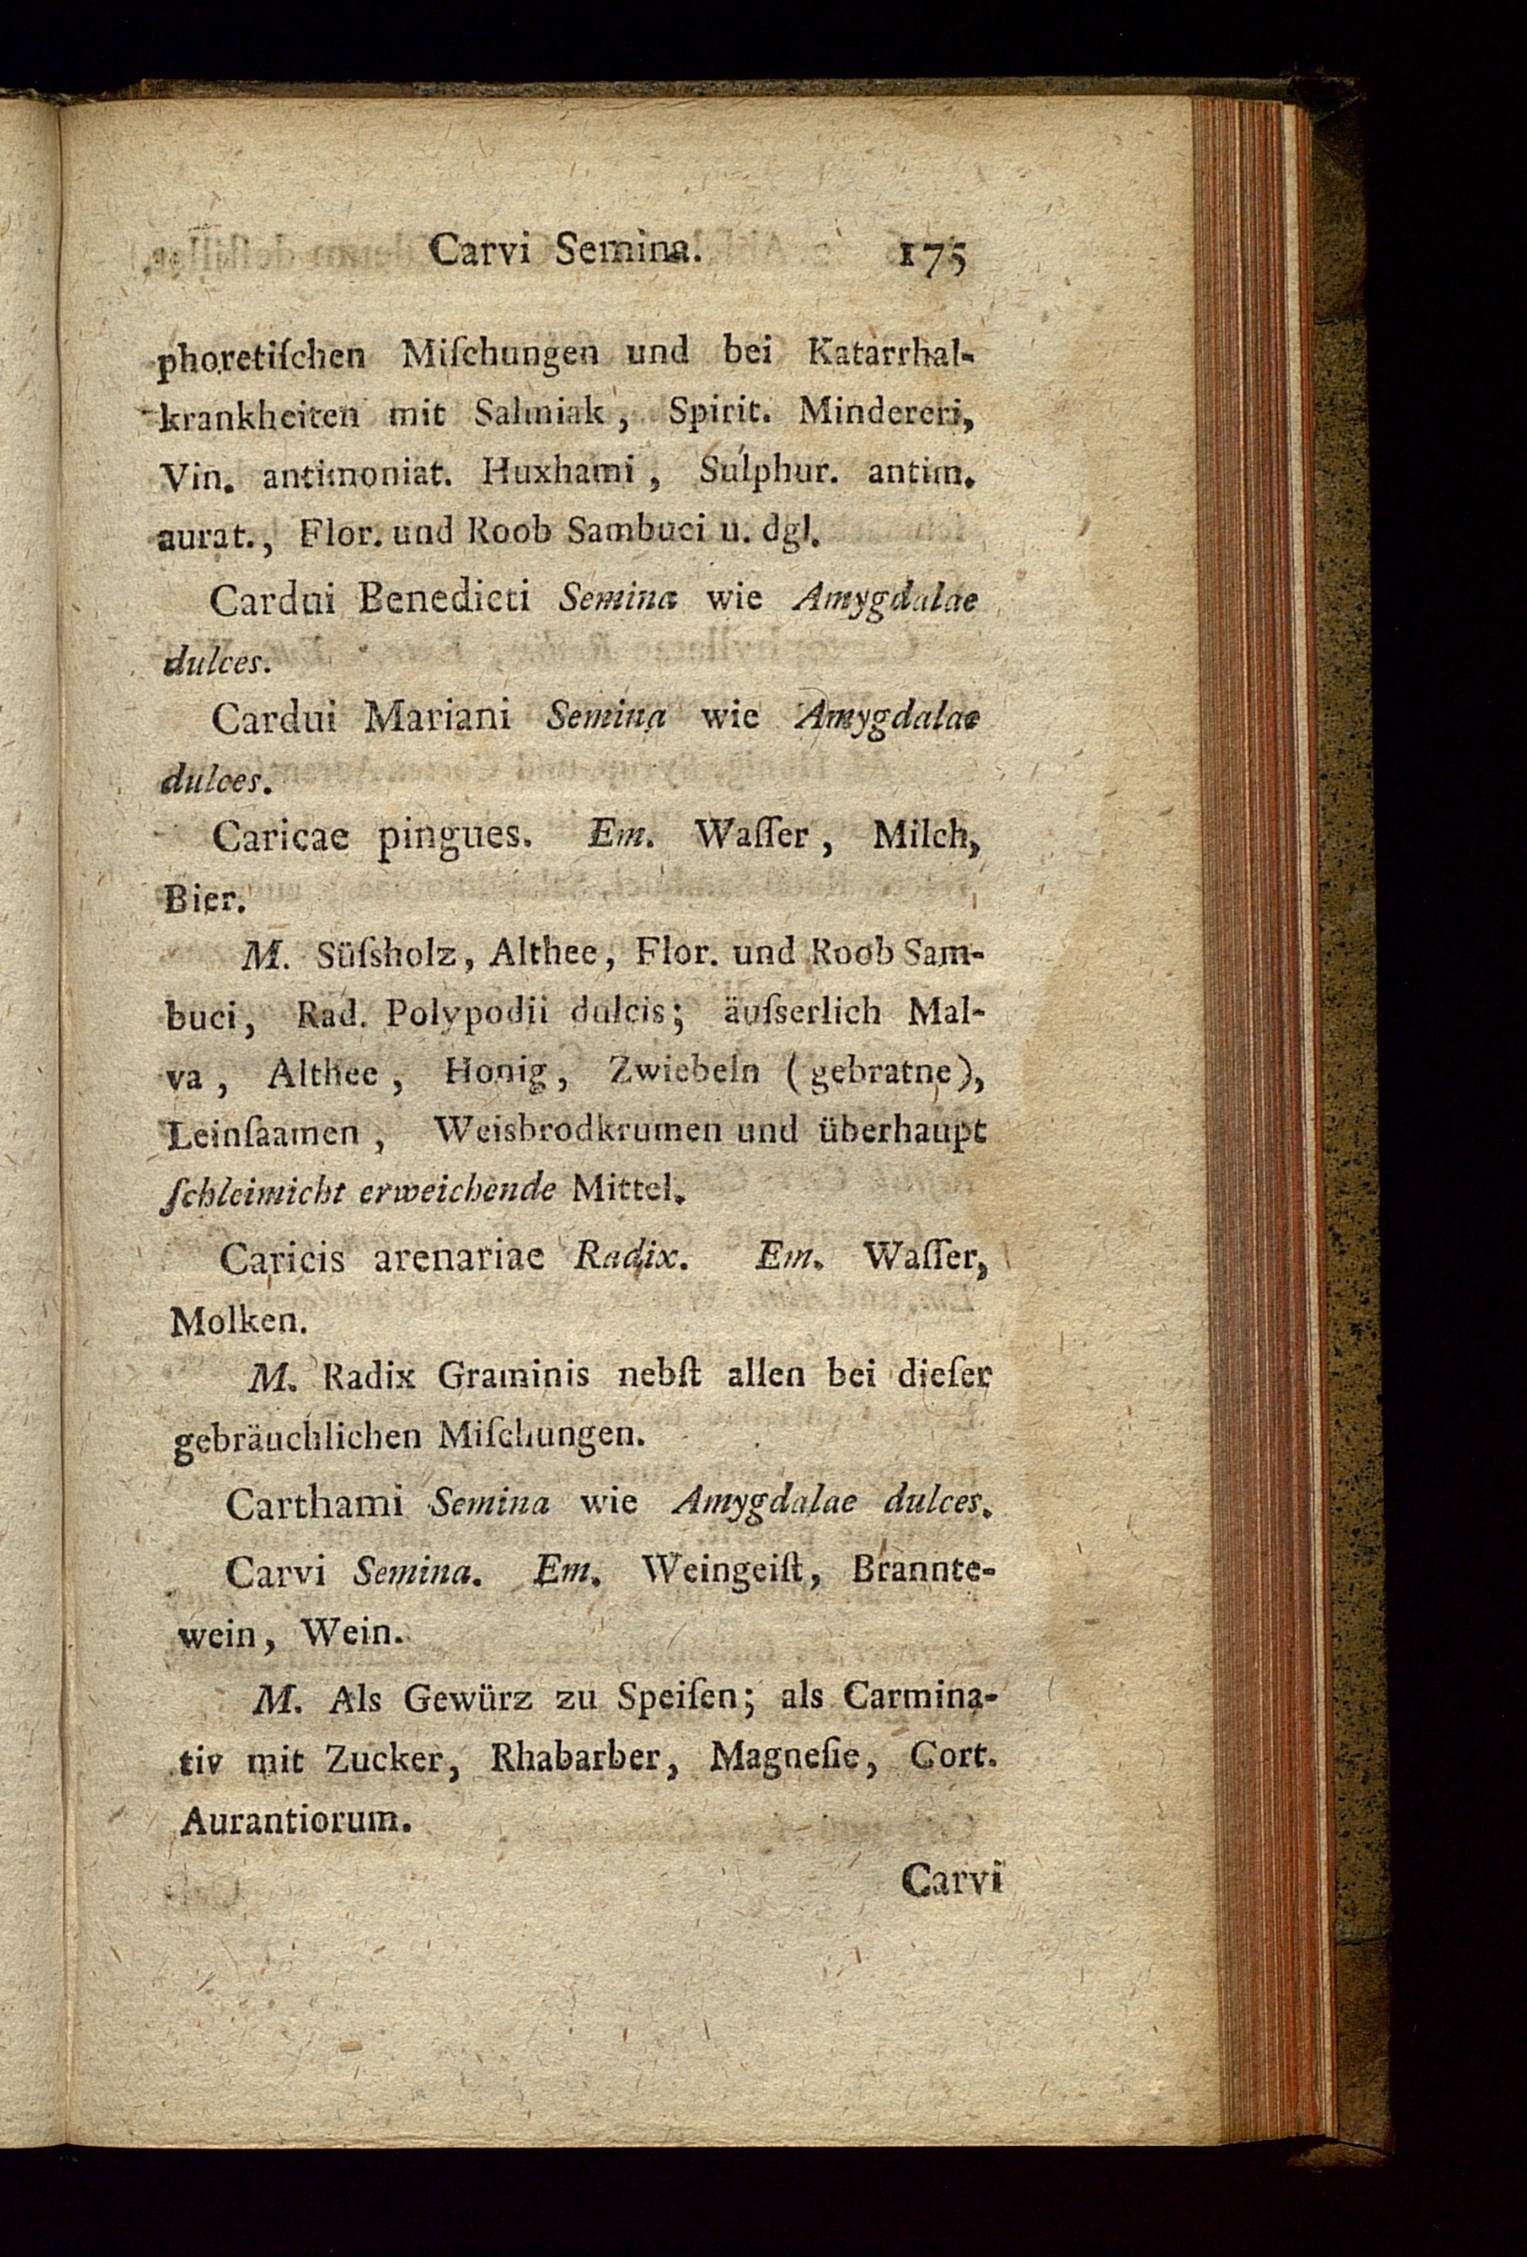 Carvi Semina. 175
phoretiſchen Miſchungen und bei Katarrhal-
krankheiten mit Salmiak, Spirit. Mindereri,
Vin. antimoniat. Huxhami, Sulphur. antim.
aurat., Flor. und Roob Sambuci u. dgl.
Cardui Benedicti Semina wie Amygdalae
dulces.
Cardui Mariani Semina wie Amygdalae
dulces.
Caricae pingues. Em. Waſſer, Milch,
Bier.
M. Süſsholz, Althee, Flor. und Roob Sam-
buci, Rad. Polypodii dulcis; äuſserlich Mal-
va, Althee, Honig, Zwiebeln (gebratne),
Leinſaamen, Weisbrodkrumen und überhaupt
ſchleimicht erweichende Mittel.
Caricis arenariae Radix. Em. Waſſer,
Molken.
M. Radix Graminis nebſt allen bei dieſer
gebräuchlichen Miſchungen.
Carthami Semina wie Amygdalae dulces.
Carvi Semina. Em. Weingeiſt, Brannte-
wein, Wein.
M. Als Gewürz zu Speiſen; als Carmina-
tiv mit Zucker, Rhabarber, Magneſie, Cort.
Aurantiorum.
Carvi